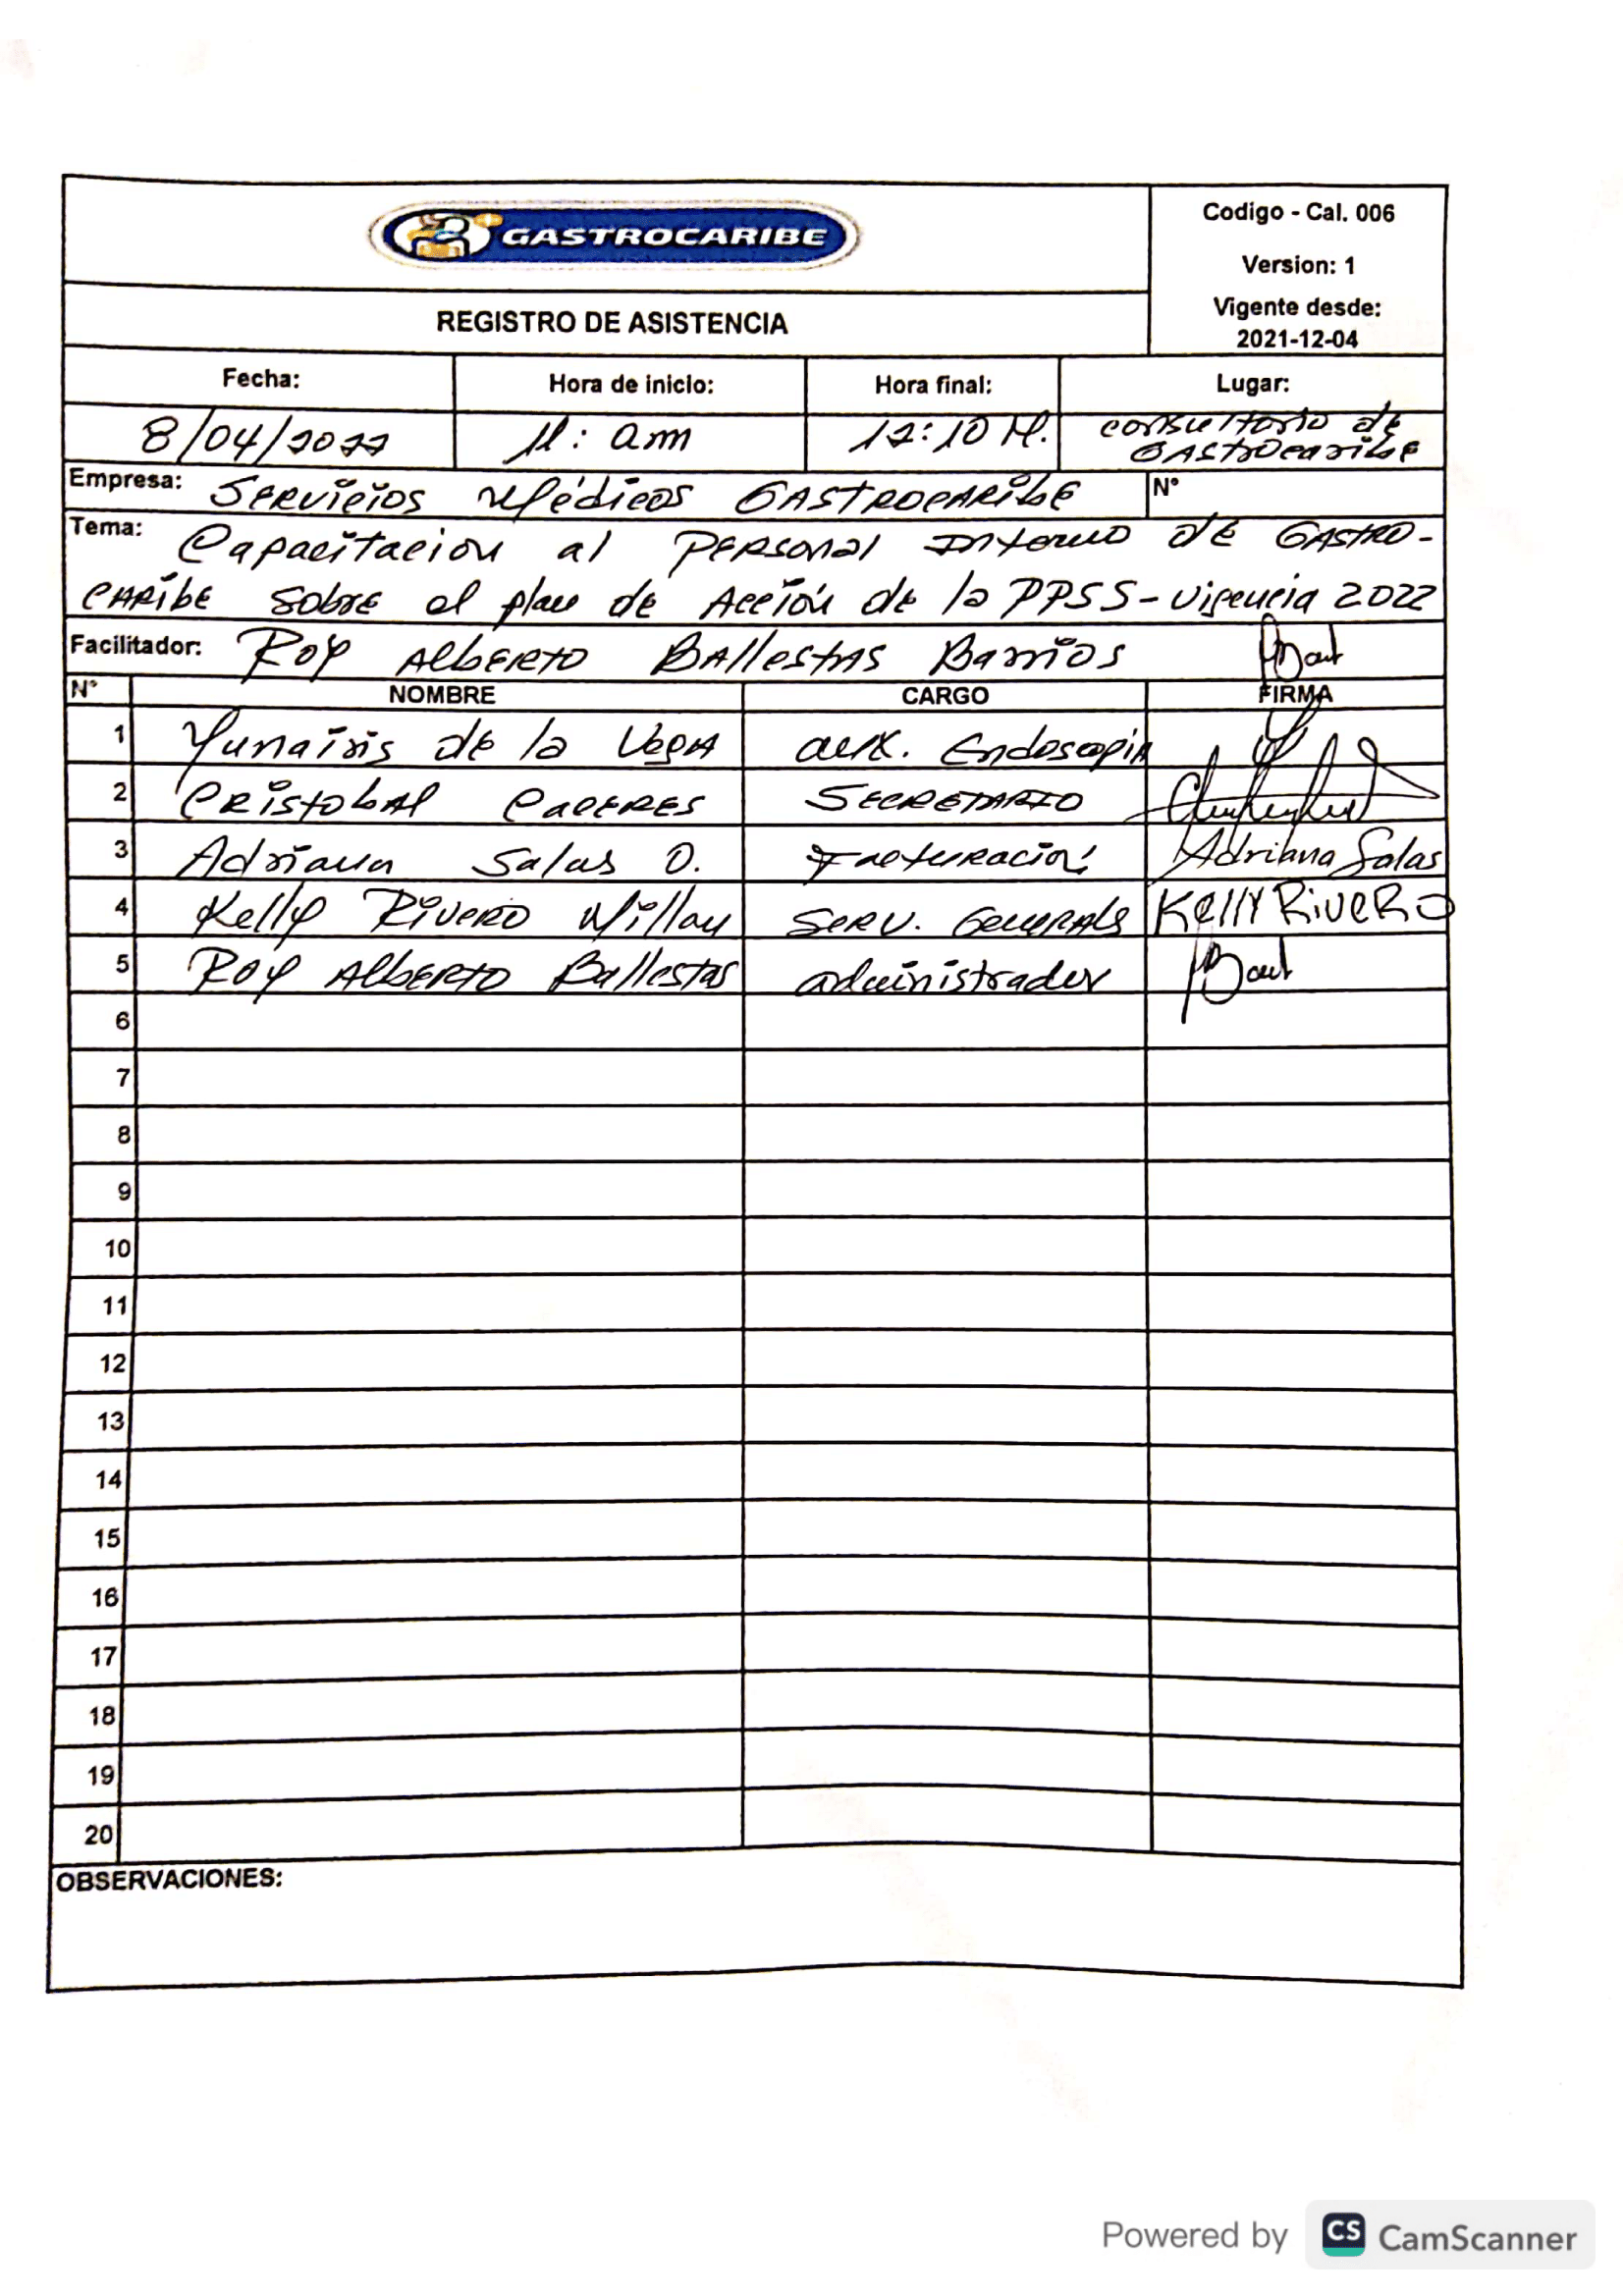 GASTROCARIBE
Codigo - Cal. 006
Version: 1
Vigente desde:
2021-12-04
REGISTRO DE ASISTENCIA
Fecha: Hora de inicio: Hora final: Lugar:
8/04/2022 11: am 12:10 M. consultorio de
GASTROcaribe
Empresa: SERVICIOS Médicos GASTROCARIBE N°
Tema: Capacitacion al PERSONAl INterno de GASTRO-
CARIbE SobrE el plan de Acción de la PPSS-vigencia 2022
Facilitador: Roy AlbERTO BAllestAS Barrios
N° NOMBRE CARGO FIRMA
1 Yunairis de la VegA aux. EndoscopiA
2 CRIStobAl CACERES SECRETARIO
3 Adriana Salas O. Facturación Adriana Salas
4 Kelly RIVERO Millan SERV. GenerAls KellY RiveRo
5 Roy AlbERTO Ballestas administrador
6
7
8
9
10
11
12
13
14
15
16
17
18
19
20
OBSERVACIONES:
Powered by CS CamScanner